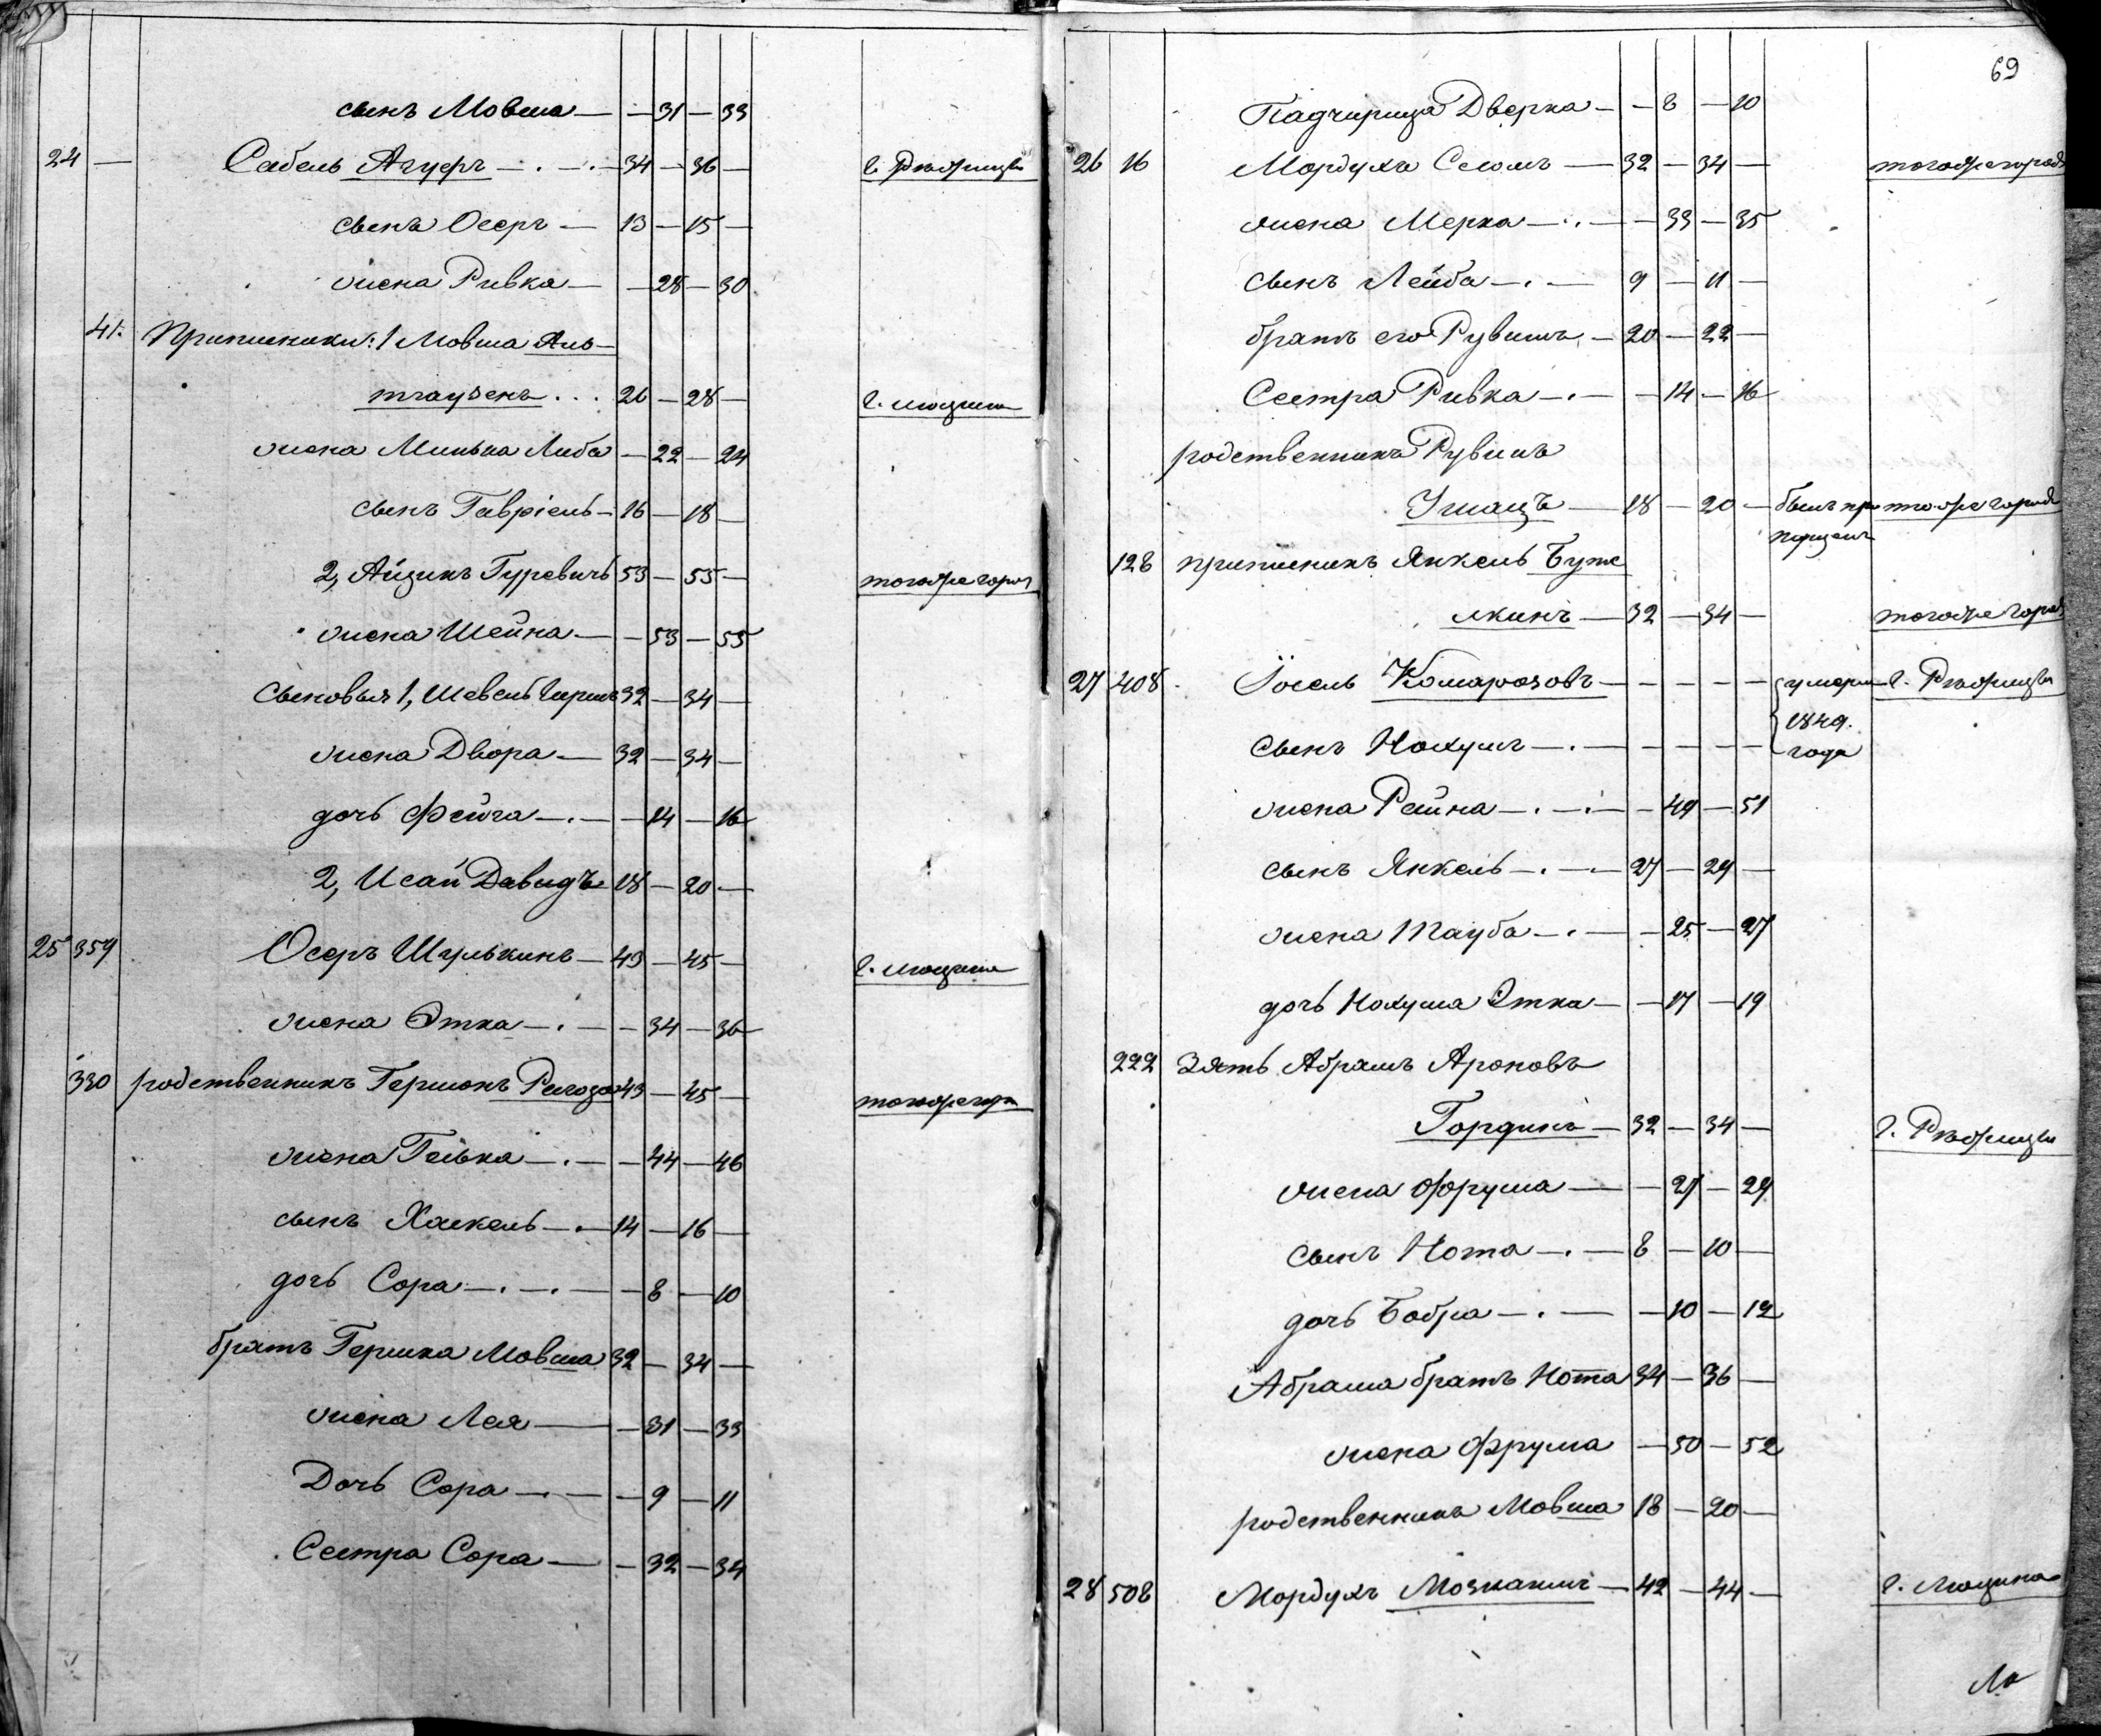 сынъ Мовша — — 31 — 33
24 — Сабель Агуфъ — . — . — 34 — 36 — г. Рѣжицы
сынъ Осеръ — 13 — 15 —
жена Ривка — — 28 — 30
41. Приписники: 1 Мовша Аль-
тгаузенъ . . . 26 — 28 — г. Люцина
жена Минька Либа — 22 — 24
сынъ Гавріель — 16 — 18 —
2, Айзикъ Гуревичъ 53 — 55 — тогоже город
жена Шейна — — 53 — 55
Сыновья 1, Шевель Гирша 32 — 34 —
жена Двора — 32 — 34 —
дочь Фейга — . — — 14 — 16
2, Исай Давидъ 18 — 20 —
25 359 Осеръ Шулькинъ — 43 — 45 — г. Люцина
жена Этка — . — — 34 — 36
330 родственникъ Гершонъ 43 — 45 — тогоже гор
жена Гелька — . — — 44 — 46
сынъ Хаскель — . — 14 — 16 —
дочь Сора — . — . — — 8 — 10
братъ Гершка Мовша 32 — 34 —
жена Лея — — 31 — 33
Дочь Сора — . — — 9 — 11
Сестра Сора — — 32 — 34
69
Падчирица Дверка — — 8 — 10
26 16 Мордухъ Селомъ — 32 — 34 — тогожегорода
жена Мерка — . — — 33 — 35
сынъ Лейба — . — 9 — 11 —
братъ его Рувимъ — 20 — 22 —
Сестра Ривка — . — — 14 — 16
родственникъ Рувинъ
18 — 20 — былъ про тогоже города
пущенъ
128 приписникъ Янкель Буже
якинъ — 32 — 34 — тогоже город
27 408 Іосель Комарозовъ — — — — — умерли г. Рѣжицы
1849.
сынъ Нохумъ — . — — — — — года
жена Рейна — . — . — — 49 — 51
сынъ Янкель — . — . — 27 — 29 —
жена Тауба — . — — 25 — 27
дочь Нохума Этка — — 17 — 19
222 Зять Абрамъ Ароновъ
Гординъ — 32 — 34 — г. Рѣжицы
жена Фрума — — 27 — 29
сынъ Нота — . — 8 — 10 —
дочь Бобра — . — — 10 — 12
Абрама братъ Нота 34 — 36 —
жена Фрума — 50 — 52
родственникъ Мовша 18 — 20 —
28 508 Мордухъ Мозканимъ — 42 — 44 — г. Люцина